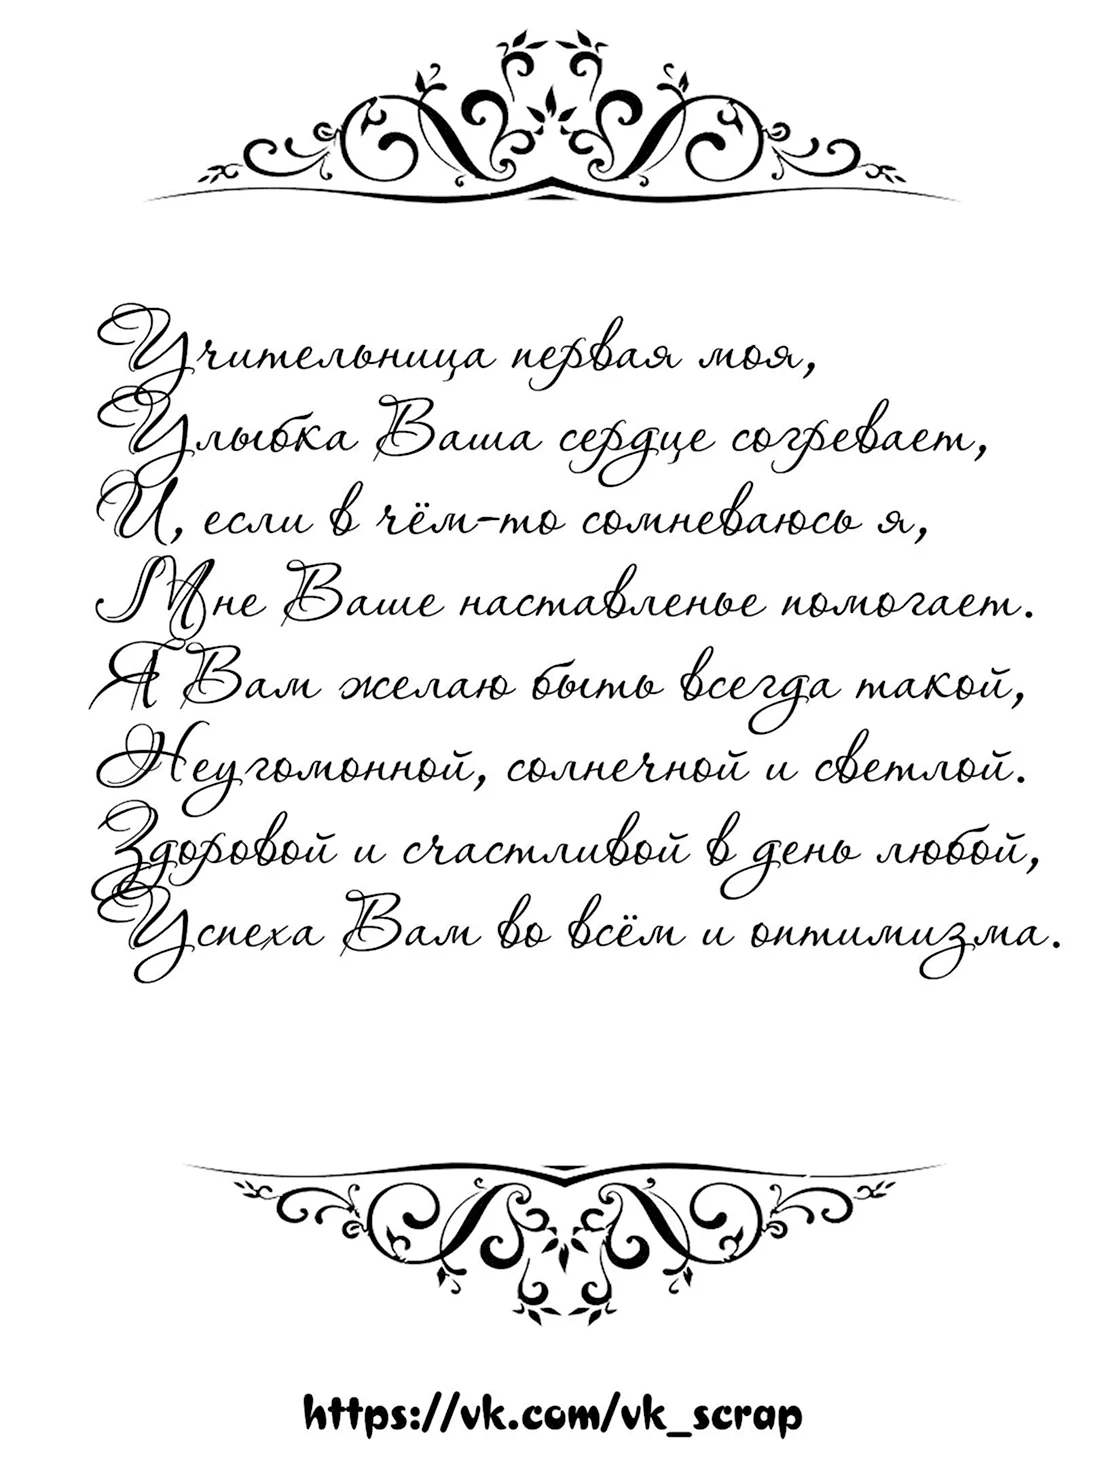 Учительница первая моя,
Улыбка Ваша сердце согревает,
И, если в чём-то сомневаюсь я,
Мне Ваше наставленье помогает.
Я Вам желаю быть всегда такой,
Неугомонной, солнечной и светлой.
Здоровой и счастливой в день любой,
Успеха Вам во всём и оптимизма.
https://vk.com/vk_scrap